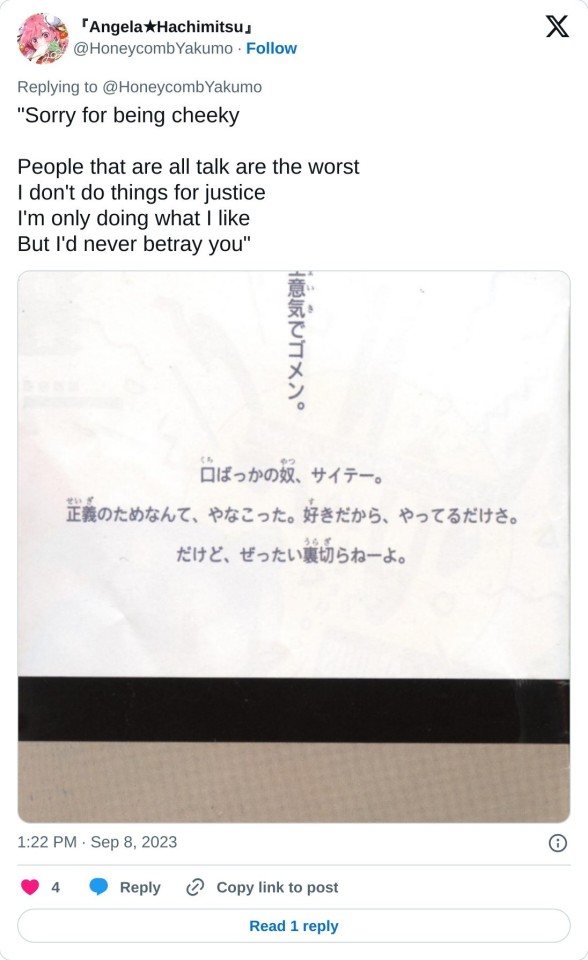 『Angela★Hachimitsu』
@HoneycombYakumo · Follow
Replying to @HoneycombYakumo
"Sorry for being cheeky
People that are all talk are the worst
I don't do things for justice
I'm only doing what I like
But I'd never betray you"
意気でゴメン。
口ばっかの奴、サイテー。
正義のためなんて、やなこった。好きだから、やってるだけさ。
だけど、ぜったい裏切らねーよ。
1:22 PM · Sep 8, 2023
4 Reply Copy link to post
Read 1 reply